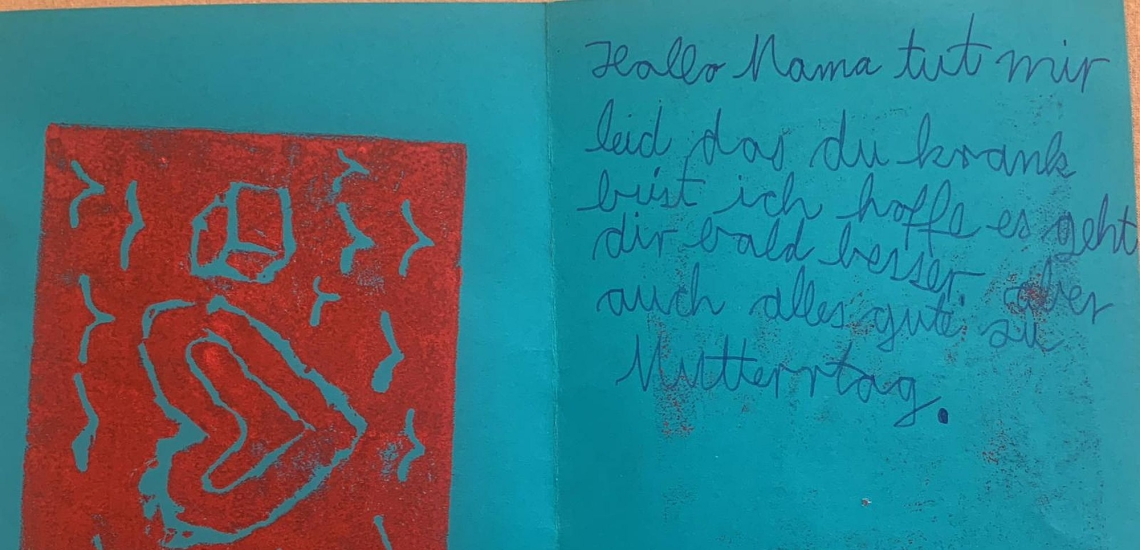 Hallo Mama tut mir
leid das du krank
bist ich hoffe es geht
dir bald besser, aber
auch alles gute zu
Mutterrtag.